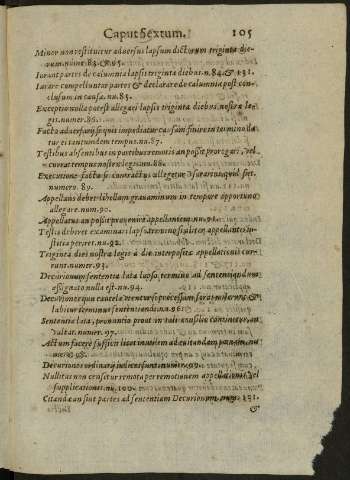 Caput Sextum. 105
Minor non restituitur aduersus lapsum dictorum triginta die-
rum. nume. 83. & 85.
Iurant partes de calumnia lapsis triginta diebus. n. 84. & 131.
Iurare compelluntur partes & declarare de calumnia post con-
clusum in causa. nu. 85.
Exceptio nulla potest allegari lapsis triginta diebus nostræ le-
gis. numer. 86.
Facto aduersarij, si quis impediatur causam finire in termino illa
tur ei tantundem tempus. nu. 87.
Testibus absentibus in partibus remotis an possit prorogari, vel
currat tempus nostræ legis. nu. 88.
Executione facta si contractus allegetur vsurarius, quid fiet.
numero 89.
Appellans debet libellum grauaminum in tempore opportuno
allegare. num. 90.
Appellatus an possit præuenire appellantem. nu. 91.
Testis deberet examinari lapso termino si alitem appellantis iu-
stitia periret. nu. 92.
Triginta diei nostræ legis à die interpositæ appellationis cur-
runt. numer. 93.
Decurionum sententia lata lapso termino ad sententiandum
assignato nulla est. nu. 94.
Decuriones qua cautela
labitur terminus sententiandi. nu. 96.
Sententia lata, pronuntio prout in tali consilio continetur, an
valeat. numer. 97.
Actum facere sufficit licet inutilem ad euitandam
nume. 98.
Decuriones ordinarij iudices sunt. numer. 99.
Nullitas non censetur remota per remotionem appellationis, vel
supplicationis. nu. 100.
Citandæ an sint partes ad sententiam Decurionum. num. 131.
&